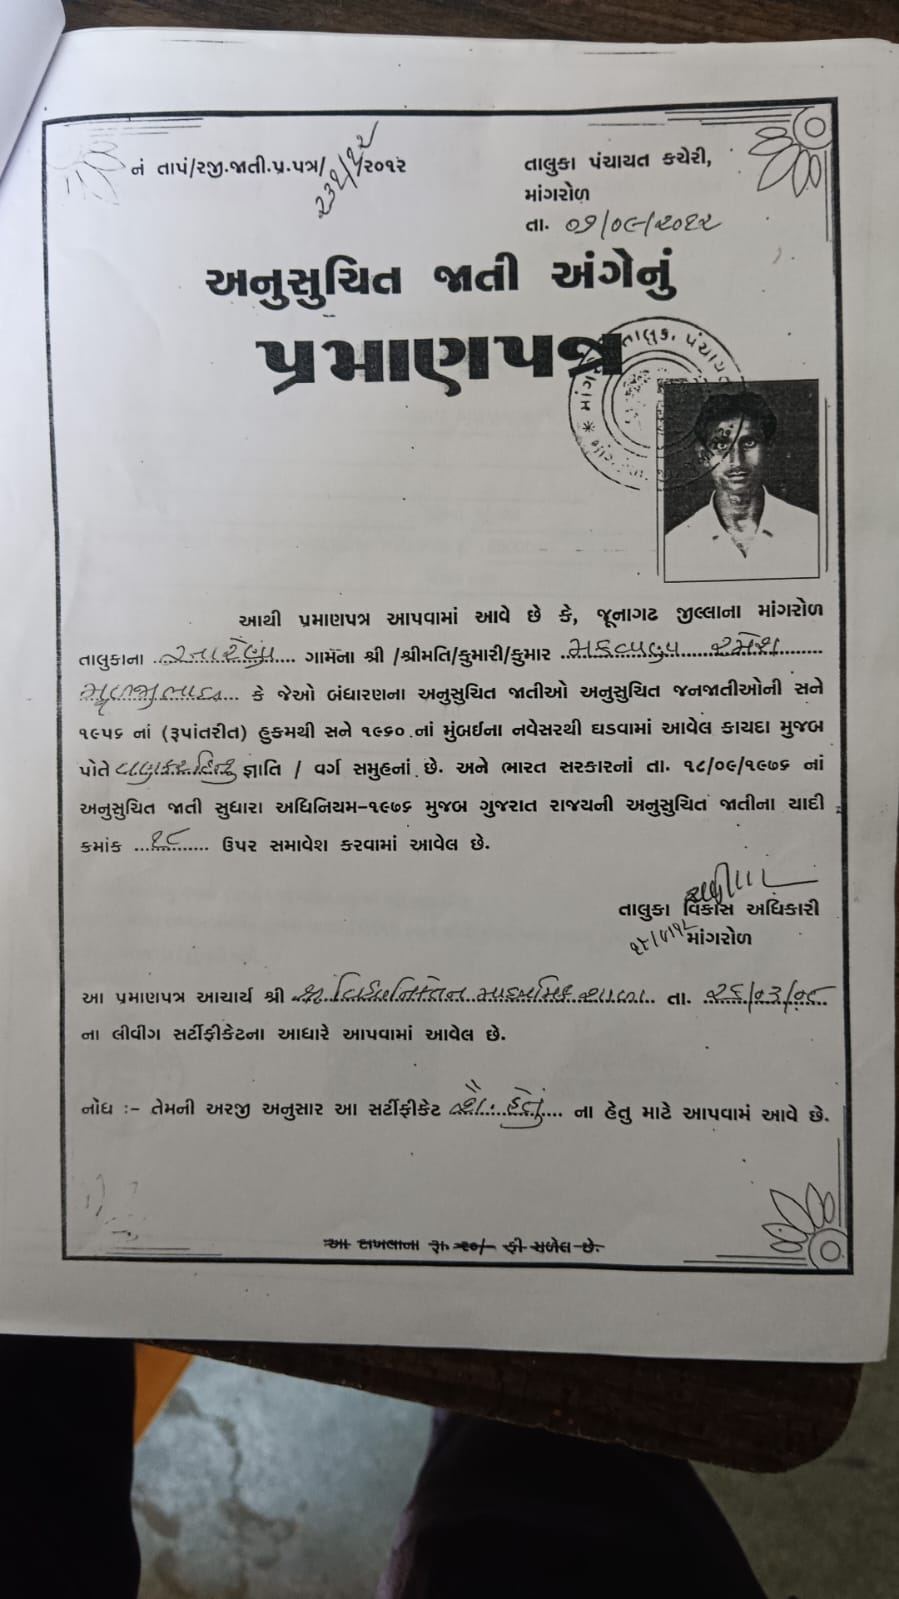 નં તાપં/રજી.જાતી.પ્ર.પત્ર/ ૨૩૧/૧૨ /૨૦૧૨
તાલુકા પંચાયત કચેરી,
માંગરોળ
તા. ૦૭/૦૯/૨૦૧૨
અનુસુચિત જાતી અંગેનું
પ્રમાણપત્ર
તાલુકા પંચાયત
આથી પ્રમાણપત્ર આપવામાં આવે છે કે, જૂનાગઢ જીલ્લાના માંગરોળ
તાલુકાના ............ ગામના શ્રી /શ્રીમતિ/કુમારી/કુમાર મકવાણા રમેશ
............ કે જેઓ બંધારણના અનુસુચિત જાતીઓ અનુસુચિત જનજાતીઓની સને
૧૯૫૬ નાં (રૂપાંતરીત) હુકમથી સને ૧૯૬૦ નાં મુંબઈના નવેસરથી ઘડવામાં આવેલ કાયદા મુજબ
પોતે વણકર હિન્દુ જ્ઞાતિ / વર્ગ સમુહનાં છે. અને ભારત સરકારનાં તા. ૧૮/૦૯/૧૯૭૬ નાં
અનુસુચિત જાતી સુધારા અધિનિયમ-૧૯૭૬ મુજબ ગુજરાત રાજયની અનુસુચિત જાતીના યાદી
કમાંક ............ ઉપર સમાવેશ કરવામાં આવેલ છે.
તાલુકા વિકાસ અધિકારી
માંગરોળ
આ પ્રમાણપત્ર આચાર્ય શ્રી ............ માધ્યમિક શાળા તા. ૨૬/૦૩/૦૮
ના લીવીગ સર્ટીફીકેટના આધારે આપવામાં આવેલ છે.
નોધ :- તેમની અરજી અનુસાર આ સર્ટીફીકેટ શૈ. હેતું ના હેતુ માટે આપવામં આવે છે.
આ દાખલાના રૂા. ૨૦/- ફી મળેલ છે.